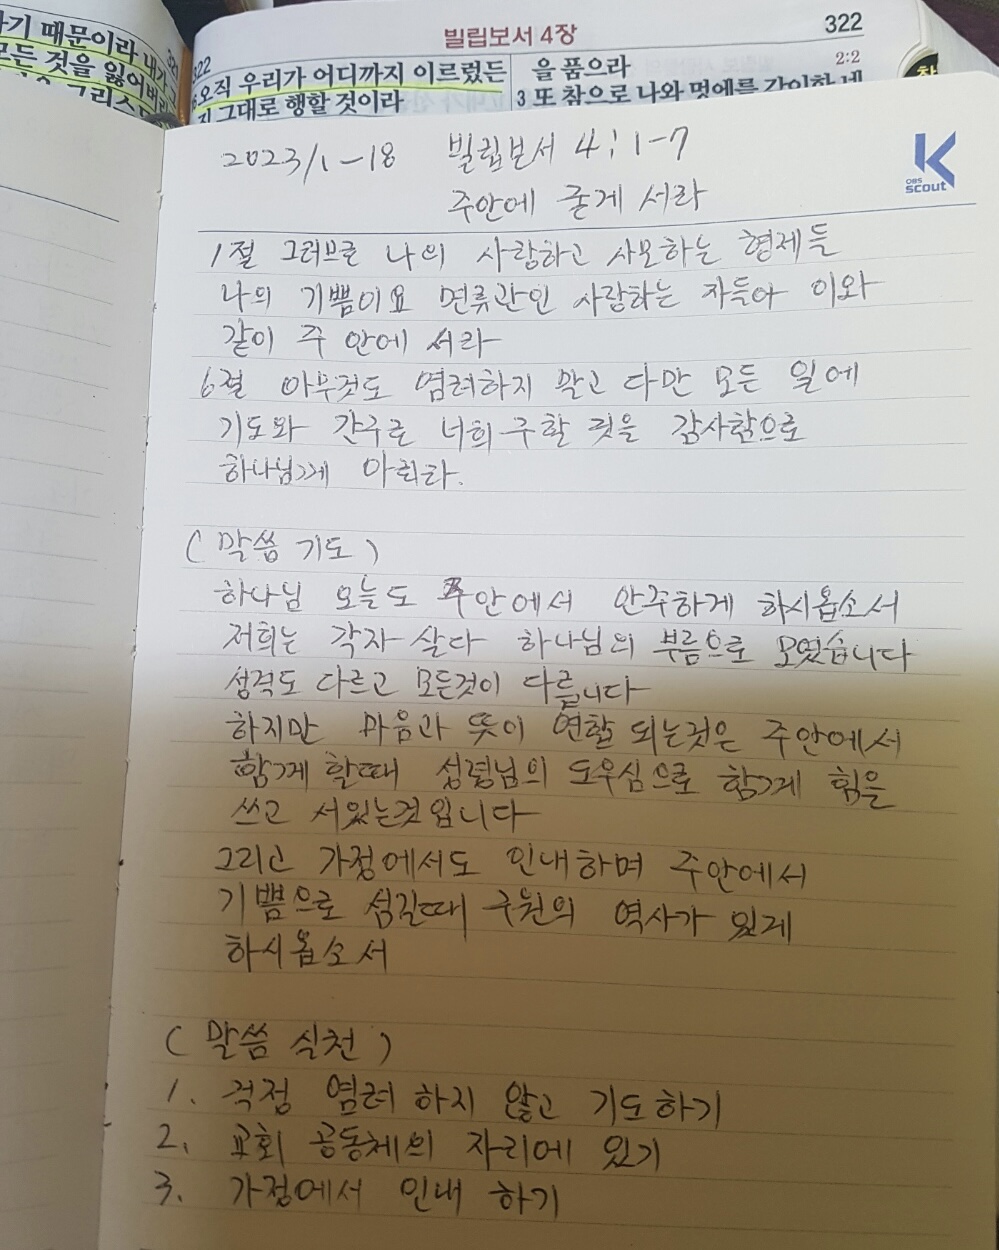 기 때문이라 내가
모든 것을 잃어버리
그리스
322
빌립보서 4장
322
오직 우리가 어디까지 이르렀든
지 그대로 행할 것이라
2:2
을 품으라
3 또 참으로 나와 멍에를 같이한 네
K
OBS
scout
2023/1-18 빌립보서 4:1-7
주안에 굳게 서라
1절 그러브로 나의 사랑하고 사모하는 형제들
나의 기쁨이요 면류관인 사랑하는 자들아 이와
같이 주 안에 서라
6절 아무것도 염려하지 말고 다만 모든 일에
기도와 간구로 너희 구할 것을 감사함으로
하나님께 아뢰라.
(말씀 기도)
하나님 오늘도 주안에서 안주하게 하시옵소서
저희는 각자 살다 하나님의 부름으로 모였습니다
성격도 다르고 모든것이 다릅니다
하지만 마음과 뜻이 연합 되는것은 주안에서
함께 할때 성령님의 도우심으로 함께 힘을
쓰고 서있는것입니다
그리고 가정에서도 인내하며 주안에서
기쁨으로 섬길때 구원의 역사가 있게
하시옵소서
(말씀 실천)
1. 걱정 염려 하지 않고 기도하기
2. 교회 공동체의 자리에 있기
3. 가정에서 인내 하기